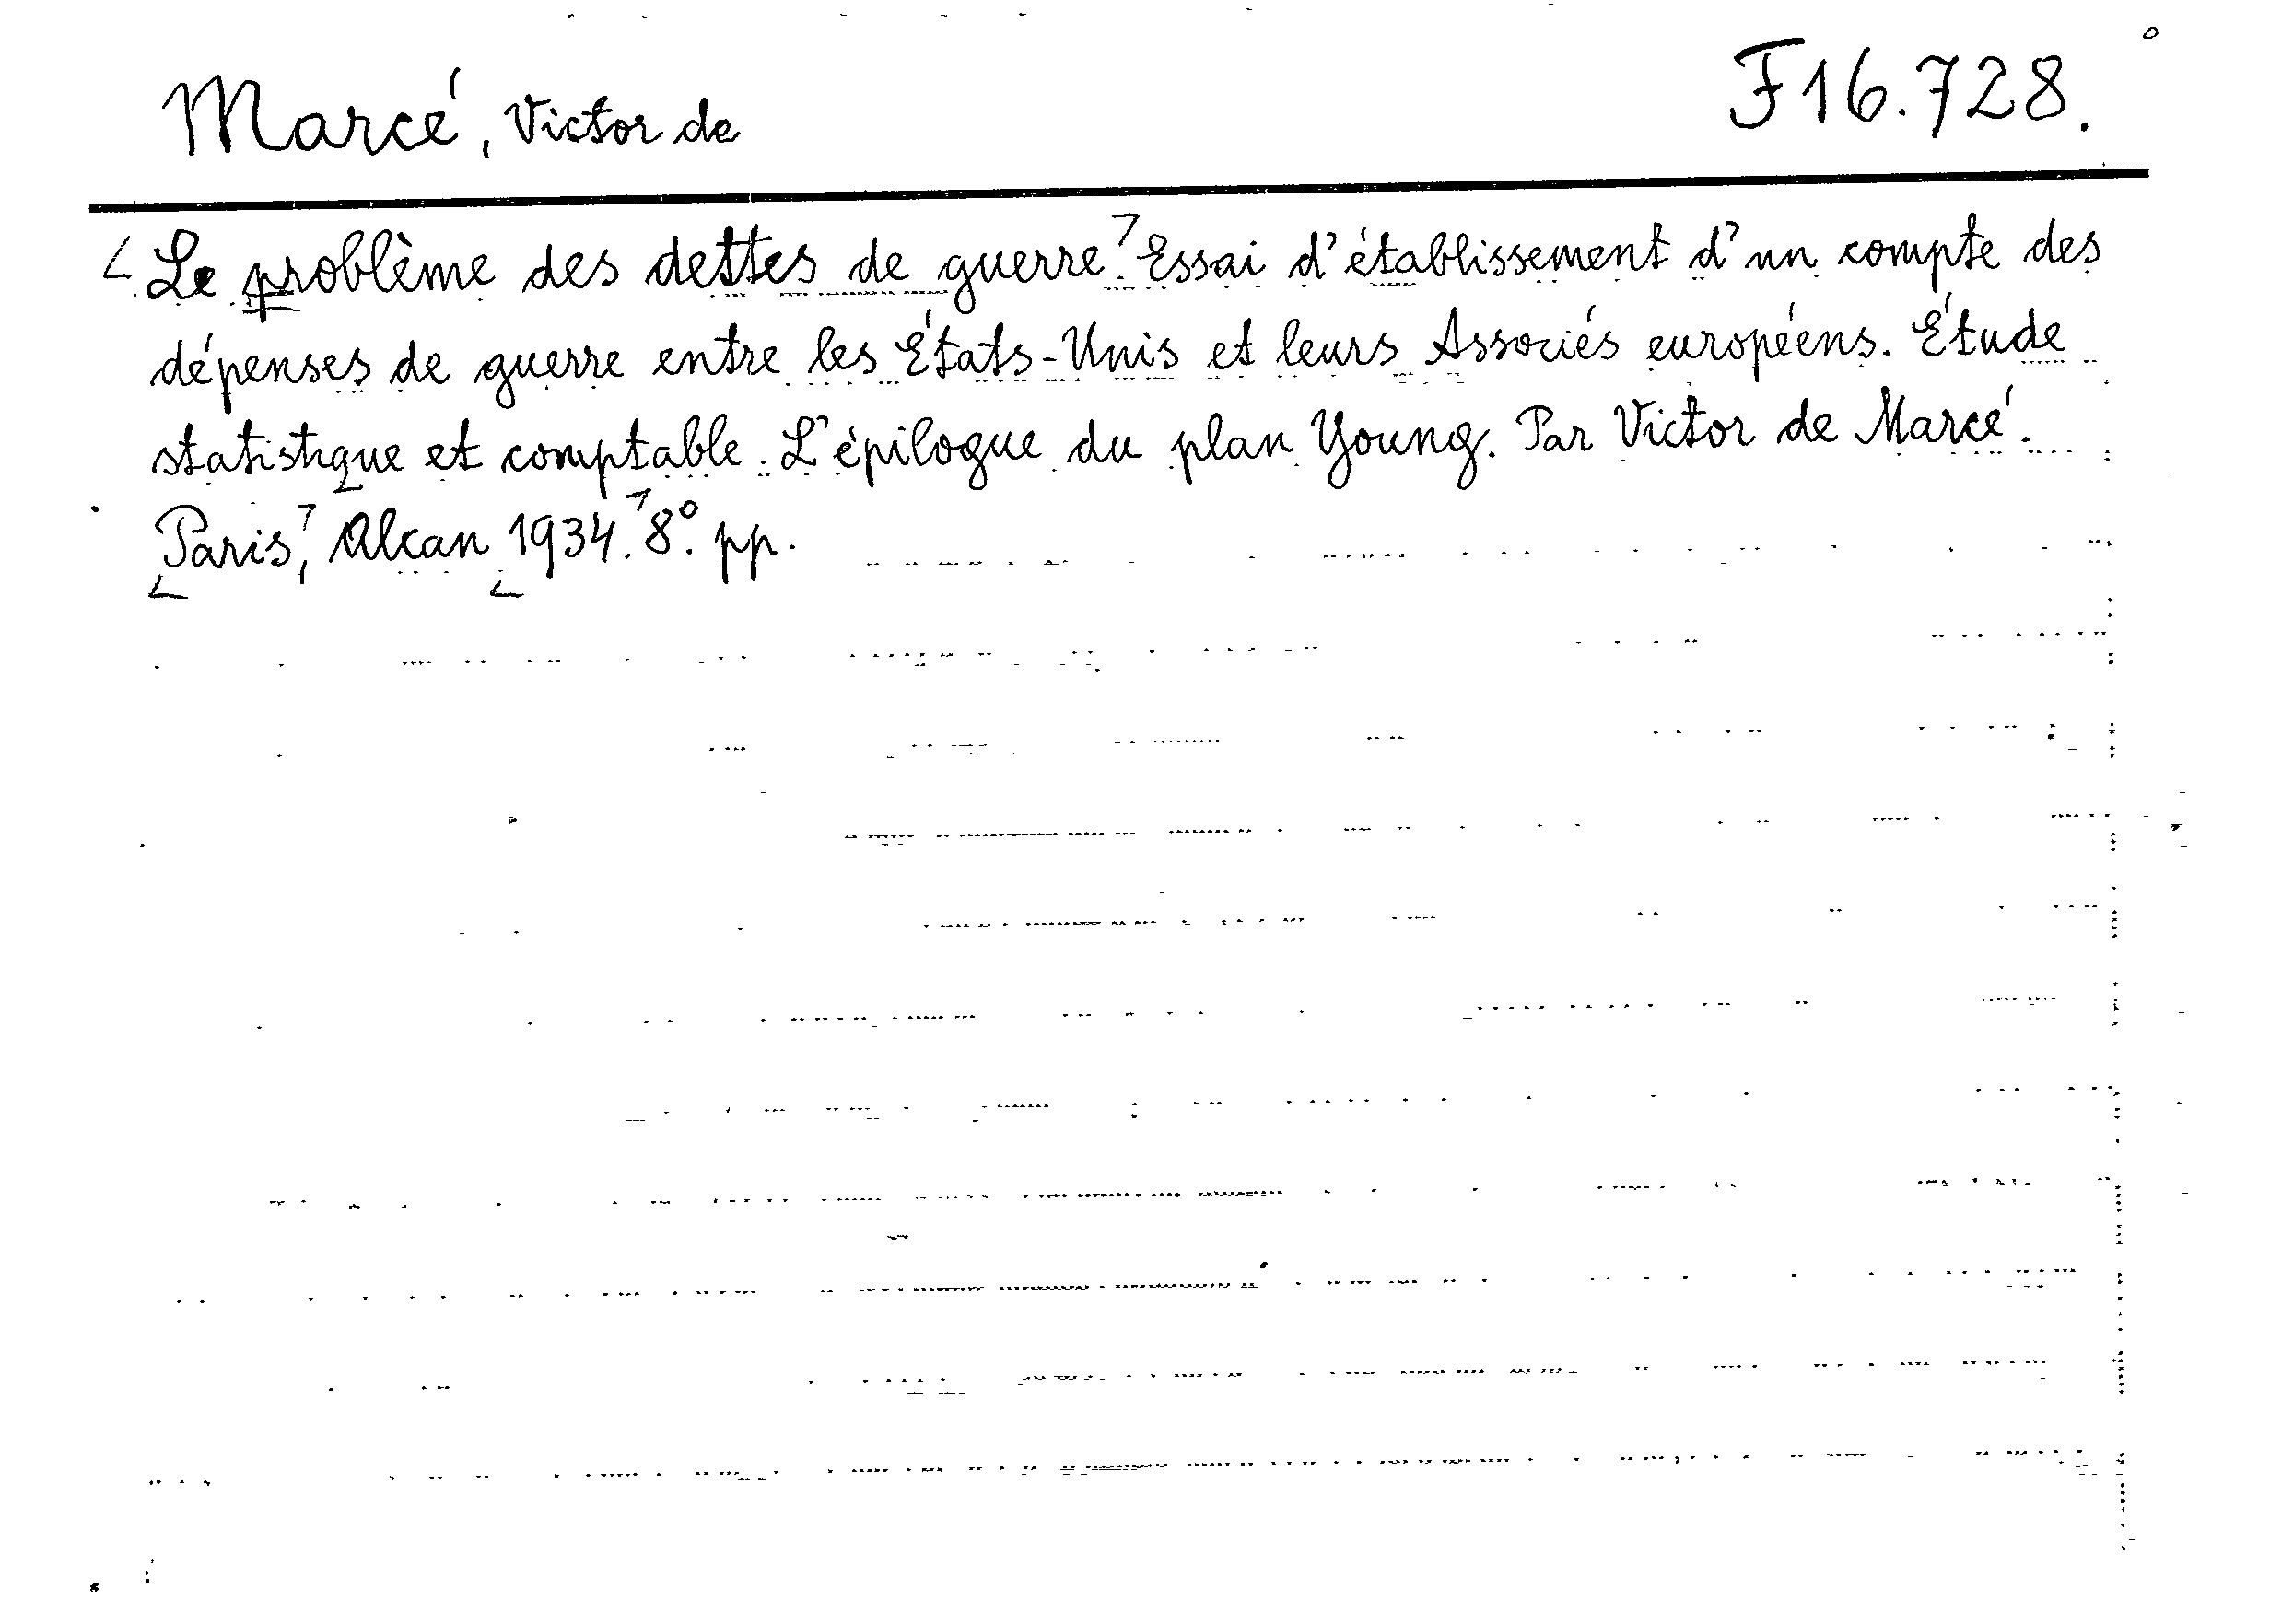 Marcé, Victor de F16.728.
Le problème des dettes de guerre. Essai d'établissement d'un compte des
dépenses de guerre entre les États-Unis et leurs Associés européens. Étude
statistique et comptable. L'épilogue du plan Young. Par Victor de Marcé.
Paris, Alcan 1934. 8°. pp.